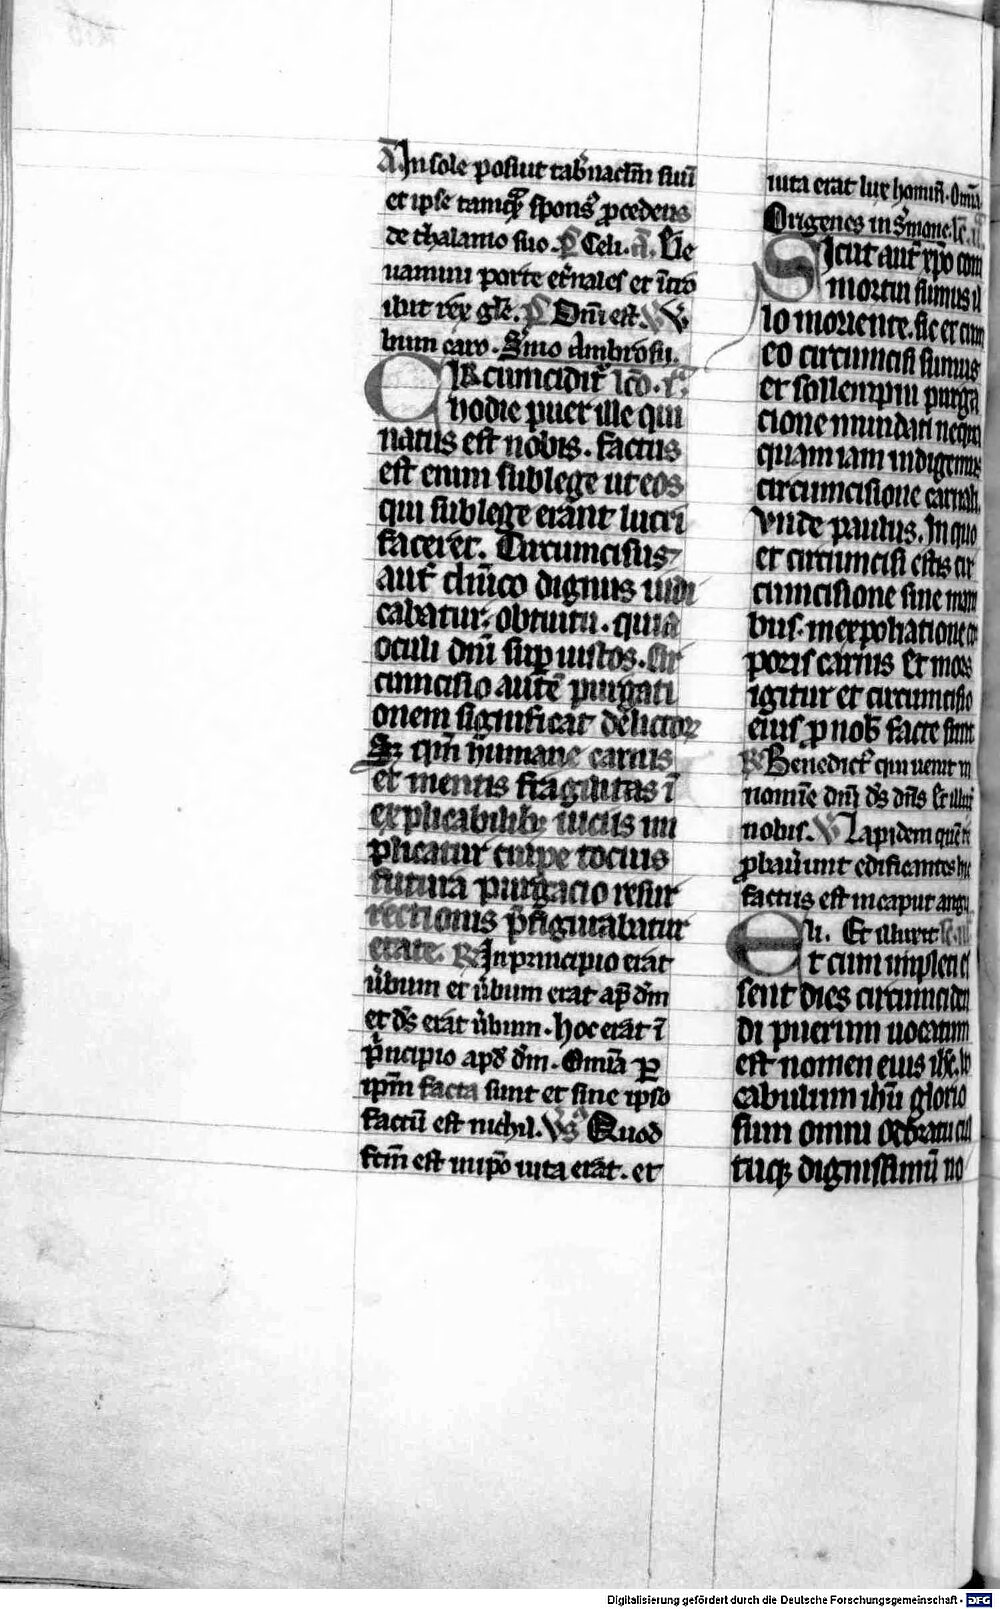 A̅ In sole posiut tab̾nac̅lm suu̅
et ipse tamq̅ʒ spons᷒ ꝓcedens
de thalamo suo. p̅s Celi. a̅. Ele
uamini porte et̾nales et i̅t̾o
ibit rex gl̅e. p̅s Dn̅i est. W̾
bum caro. S̾mo Ambrosii.
CIRcumcidit᷑ lc̅o. i.ᵃ
hodie puer ille qui
natus est nobis. factus
est enim sub lege ut eos
qui sub lege erant lucri
faceret. Circumcisus
aut̅ d̅nico dignus iudi
cabatur obtuitu. quia
oculi dn̅i suꝑ iustos. Cir
cumcisio aute̅ purgati
onem significat delictoꝝ
Sꝫ qm̅ humane carnis
et mentis fragilitas i̅
explicabilibʒ uiciis im
plicatur culpe tocius
futura purgacio resur
rectionis p̅figurabatur
etate. R̷ In principio erat
u̾bum et u̾bum erat ap̅ d̅m
et d̅s erat u̾bum. hoc erat i̅
p̾ncipio apd̅ d̅m. Om̅ia ꝑ
ip̅m facta sunt et sine ipso
factu̅ est nichil. V̾s Quod
fc̅m est in ip̅o uita erat. et
uita erat lux homin̅. Om̅ia
Origenes in s̾mone. lc̅. ii.
SIcut aut̅ xp̅o com
mortui sumus il
lo moriente. sic et cum
eo circumcisi sumus
et sollempni purga
cione mundati nequa
quam iam indigemus
circumcisione carnali.
Vnde paulus. In quo
et circumcisi estis cir
cumcisione sine mani
bus. in expoliatione cor
poris carnis Et mors
igitur et circumcisio
eius ꝓ nob̅ facte sunt
R̷ Benedict᷒ qui uenit in
nomi̅e dn̅i d̅s dn̅s Et illux̅
nobis. V̾ Lapidem que̅ re
ꝓbaue̾unt edificantes hic
factus est in caput angu
li. Et illuxit. lc̅. iii.
Et cum impleti es
sent dies circumciden
di puerum uocatum
est nomen eius ih̅c. Vo
cabulum ih̅u glorio
sum omni adoratu cul
tuqʒ dignissimu̅ no